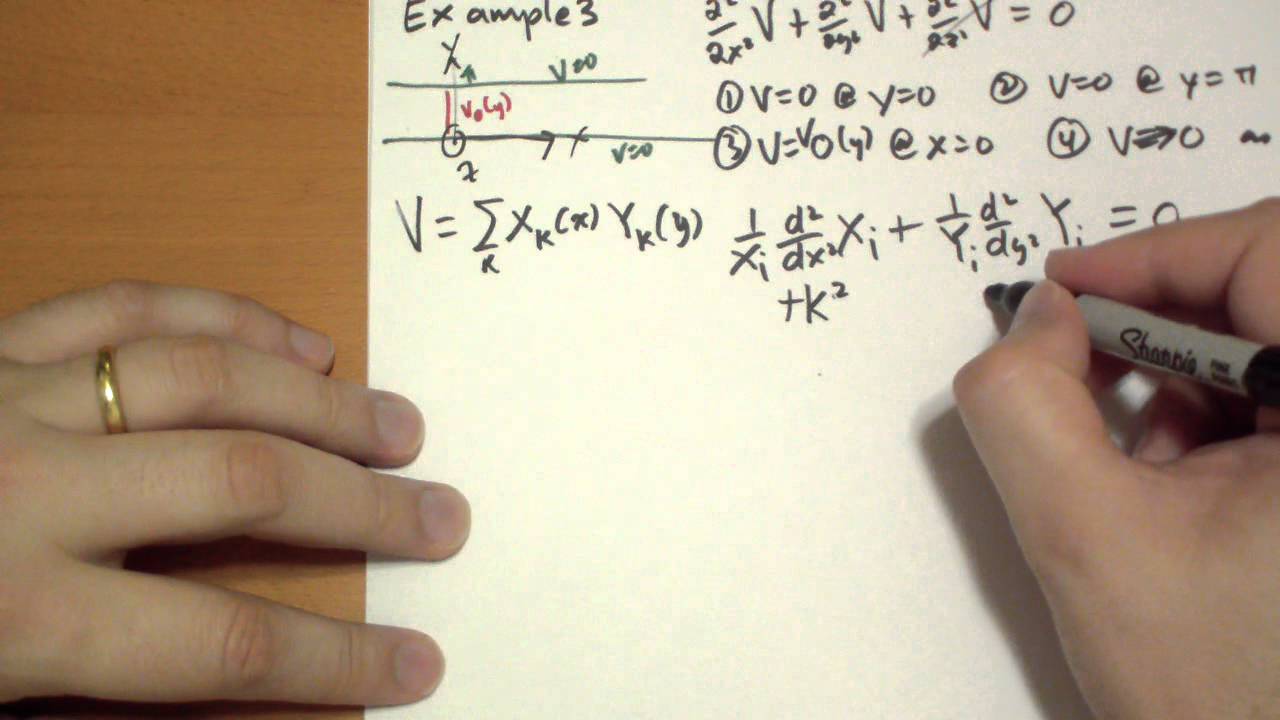 Example 3
∂²/∂x² V + ∂²/∂y² V + ∂²/∂z² V = 0
V=0
① V=0 @ y=0 ② V=0 @ y=π
V₀(y)
③ V=V0(y) @ x=0 ④ V⇒0 ∞
V=0
z
V = Σ_K X_K(x) Y_K(y) 1/X_i d²/dx² X_i + 1/Y_i d²/dy² Y_i = 0
+K²
Sharpie